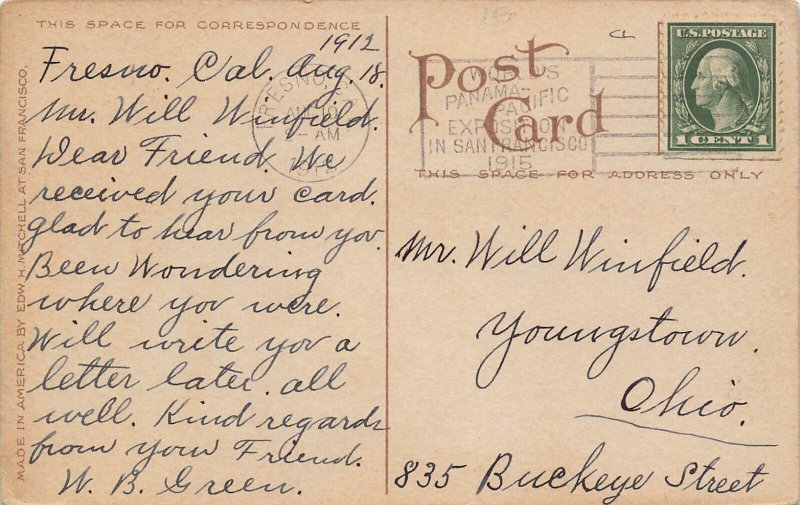 THIS SPACE FOR CORRESPONDENCE
1912
Fresno. Cal. Aug. 18.
Mr. Will Winfield.
Dear Friend. We
received your card.
glad to hear from you.
Been Wondering
where you were.
Will write you a
letter later. all
well. Kind regards
from your Friend.
W. B. Green.
MADE IN AMERICA BY EDW. H. MITCHELL AT SAN FRANCISCO.
FRESNO
AM
1912
WORLD'S
PANAMA-PACIFIC
EXPOSITION
IN SAN FRANCISCO
1915
Post Card
THIS SPACE FOR ADDRESS ONLY
U.S. POSTAGE
1 CENT 1
Mr. Will Winfield.
Youngstown.
Ohio.
835 Buckeye Street